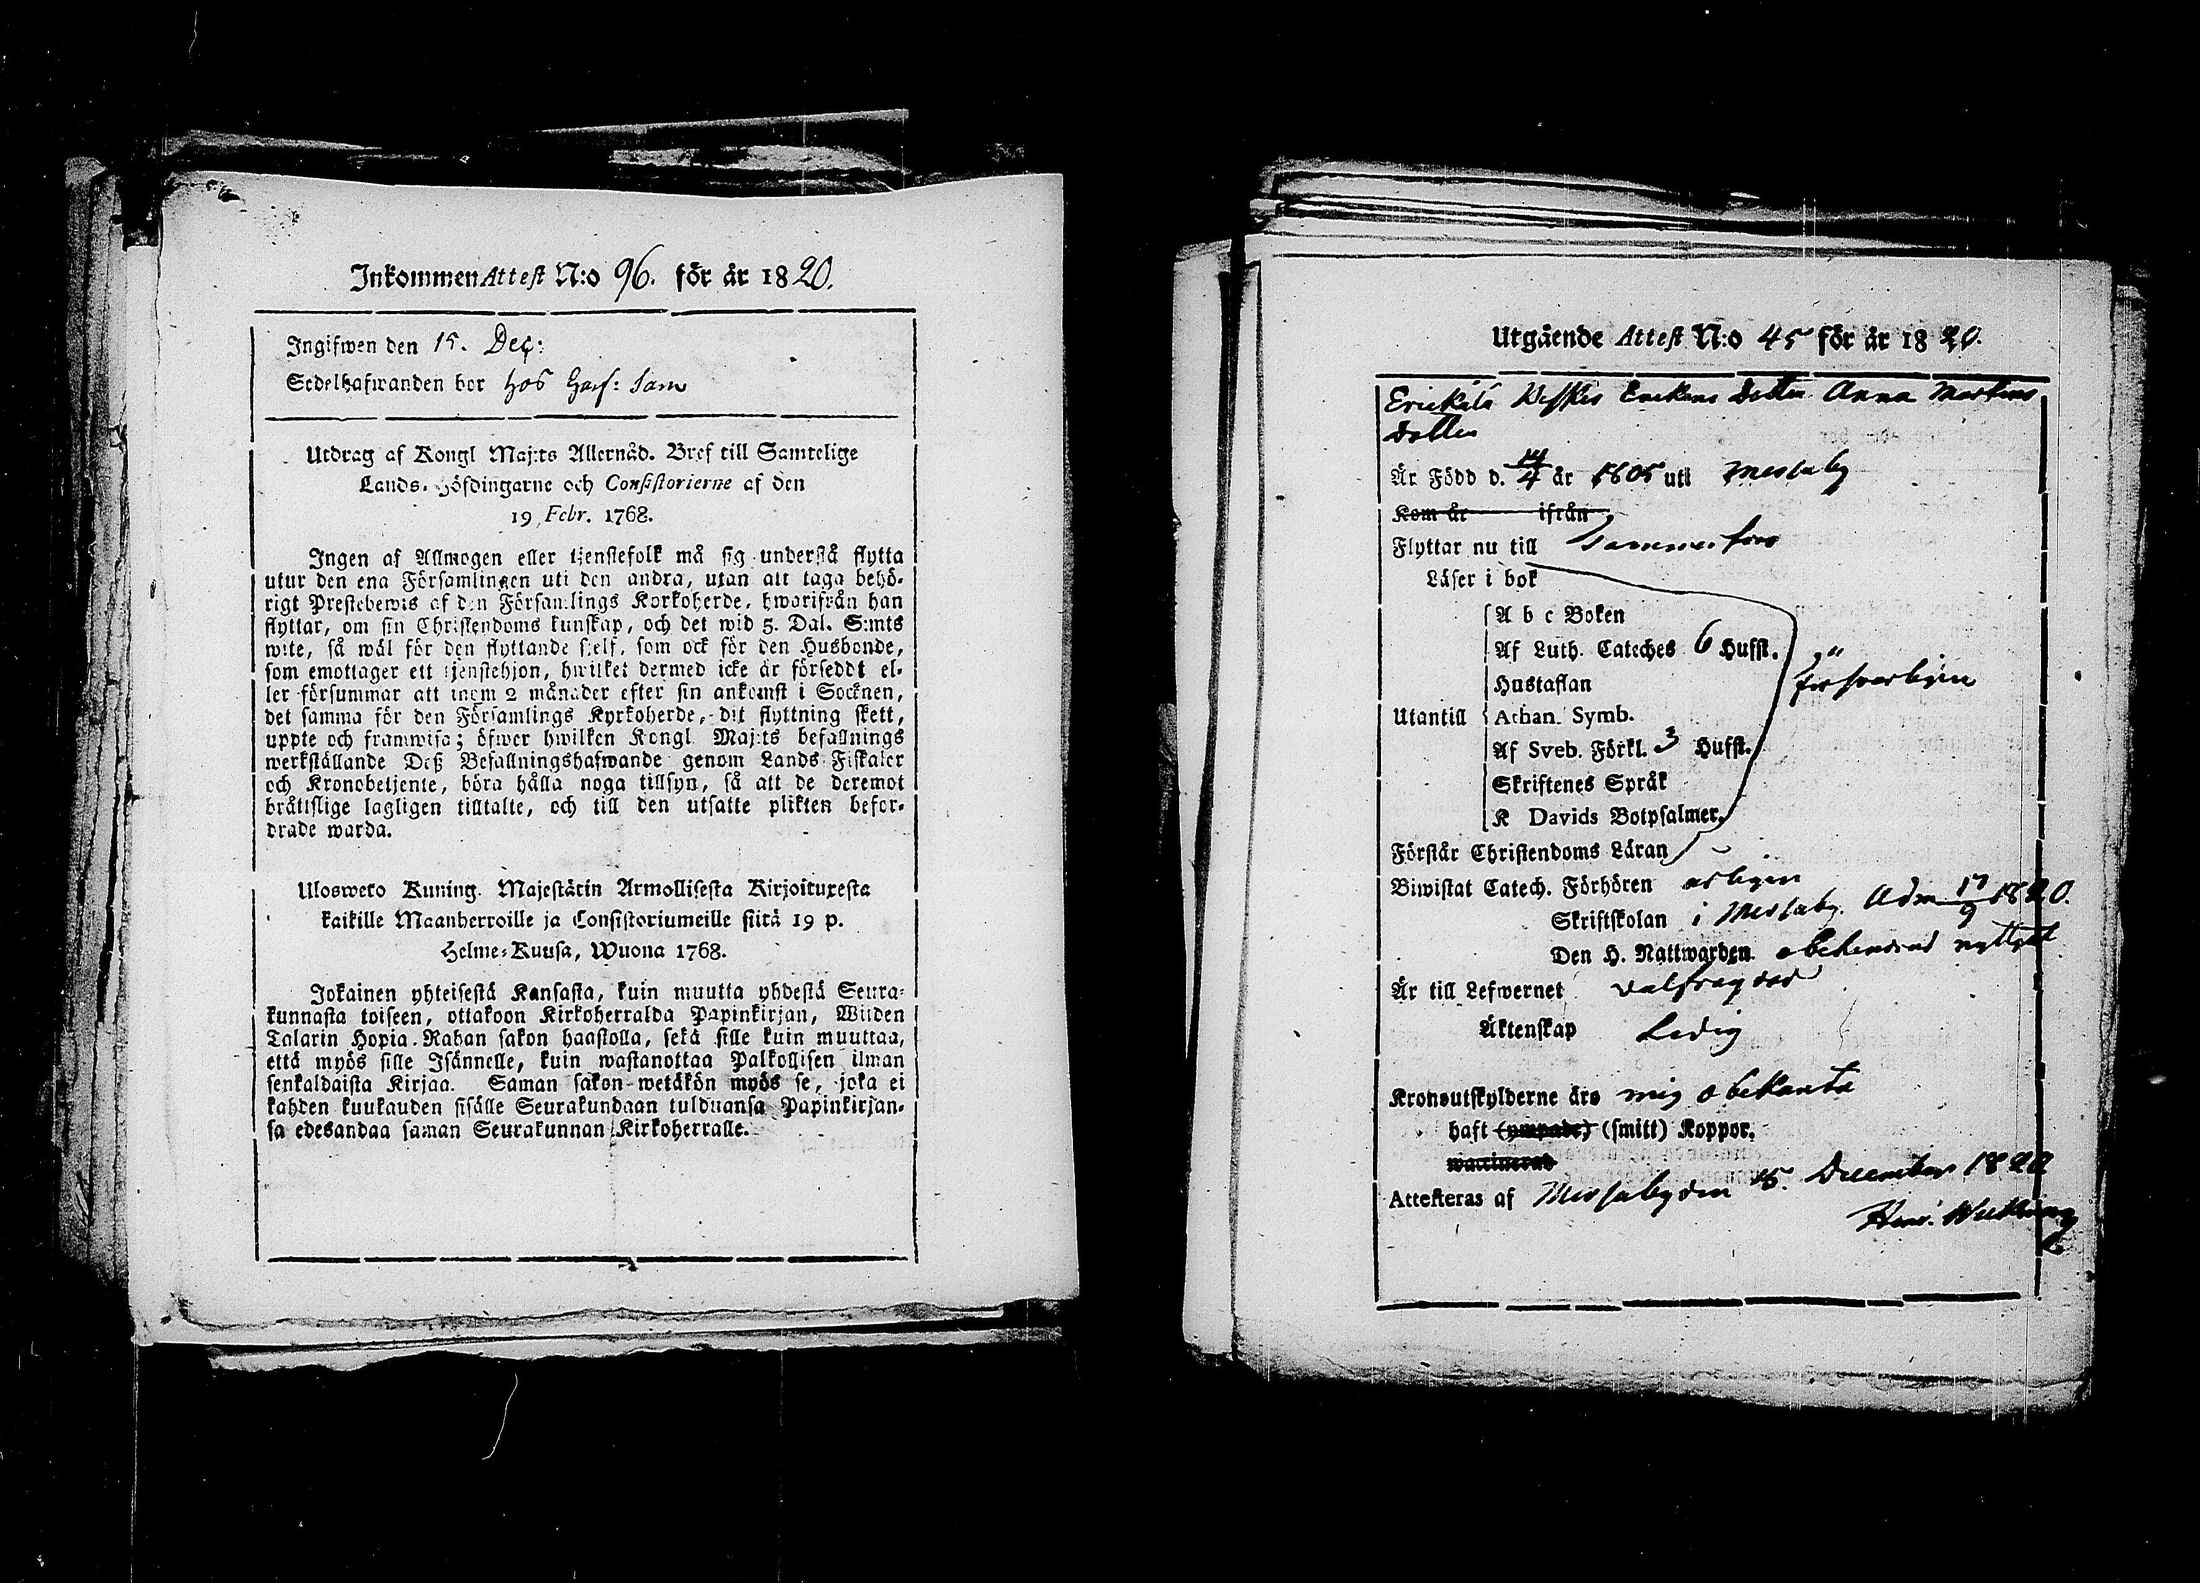 Inkommen Attest N:o 96. för år 1820.
Ingifwen den 15. Dec:
Sedelhafwanden bor hos
Utdrag af Kongl Maj:ts Allernåd. Bref till Samtelige
Lands-Höfdingarne och Consistorierne af den
19 Febr. 1768.
Ingen af Allmogen eller tjenstefolk må sig understå flytta
utur den ena Församlingen uti den andra, utan att taga behö-
rigt Prestebewis af den Församlings Kyrkoherde, hwarifrån han
flyttar, om sin Christendoms kunskap, och det wid 5. Dal. S:mts
wite, så wäl för den flyttande sjelf, som ock för den Husbonde,
som emottager ett tjenstehjon, hwilket dermed icke är försedt el-
ler försummar att inom 2 månader efter sin ankomst i Socknen,
det samma för den Församlings Kyrkoherde, dit flyttning skett,
uppte och framwisa; öfwer hwilken Kongl Maj:ts befallnings
werkställande Deß Befallningshafwande genom Lands Fiskaler
och Kronobetjente, böra hålla noga tillsyn, så att de deremot
bråttslige lagligen tilltalte, och till den utsatte plikten befor-
drade warda.
Ulosweto Kuning. Majestätin Armollisesta Kirjoituxesta
kaikille Maanherroille ja Consistoriumeille siitä 19 p.
Helme-Kuusa, Wuona 1768.
Jokainen yhteisestä Kansasta, kuin muutta yhdestä Seura-
kunnasta toiseen, ottakoon Kirkoherralda Papinkirjan, Wiiden
Talarin Hopia Rahan sakon haastolla, sekä sille kuin muuttaa,
että myös sille Isännelle, kuin wastanottaa Palkollisen ilman
senkaldaista Kirjaa. Saman sakon wetäkön myös se, joka ei
kahden kuukauden sisälle Seurakundaan tulduansa Papinkirjan-
sa edesandaa saman Seurakunnan Kirkoherralle.
Utgående Attest N:o 45 för år 1820.
Erickilä Dotter Anna Martins
Dotter
Är Född d. 14/4 år 1805 uti Messuby
Kom år ifrån
Flyttar nu till Tammerfors
Läser i bok
A b c Boken
Af Luth. Cateches 6 Hufst.
Hustaflan
försvarligen
Utantill Athan. Symb.
Af Sveb. Förkl. 3 Hufst.
Skriftenes Språk
K Davids Botpsalmer.
Förstår Christendoms Läran
Biwistat Catech. Förhören årligen
Skriftskolan i Messuby. Adm 17/9 1820.
Den H. Nattwarden obehindrad nyttjat
Är till Lefwernet välfrägdad
Äktenskap Ledig
Kronoutskylderne äro mig obekanta
haft (ympade) (smitt) Koppor.
waccinerad
Attesteras af Messuby den 15. December 1820
Henr.